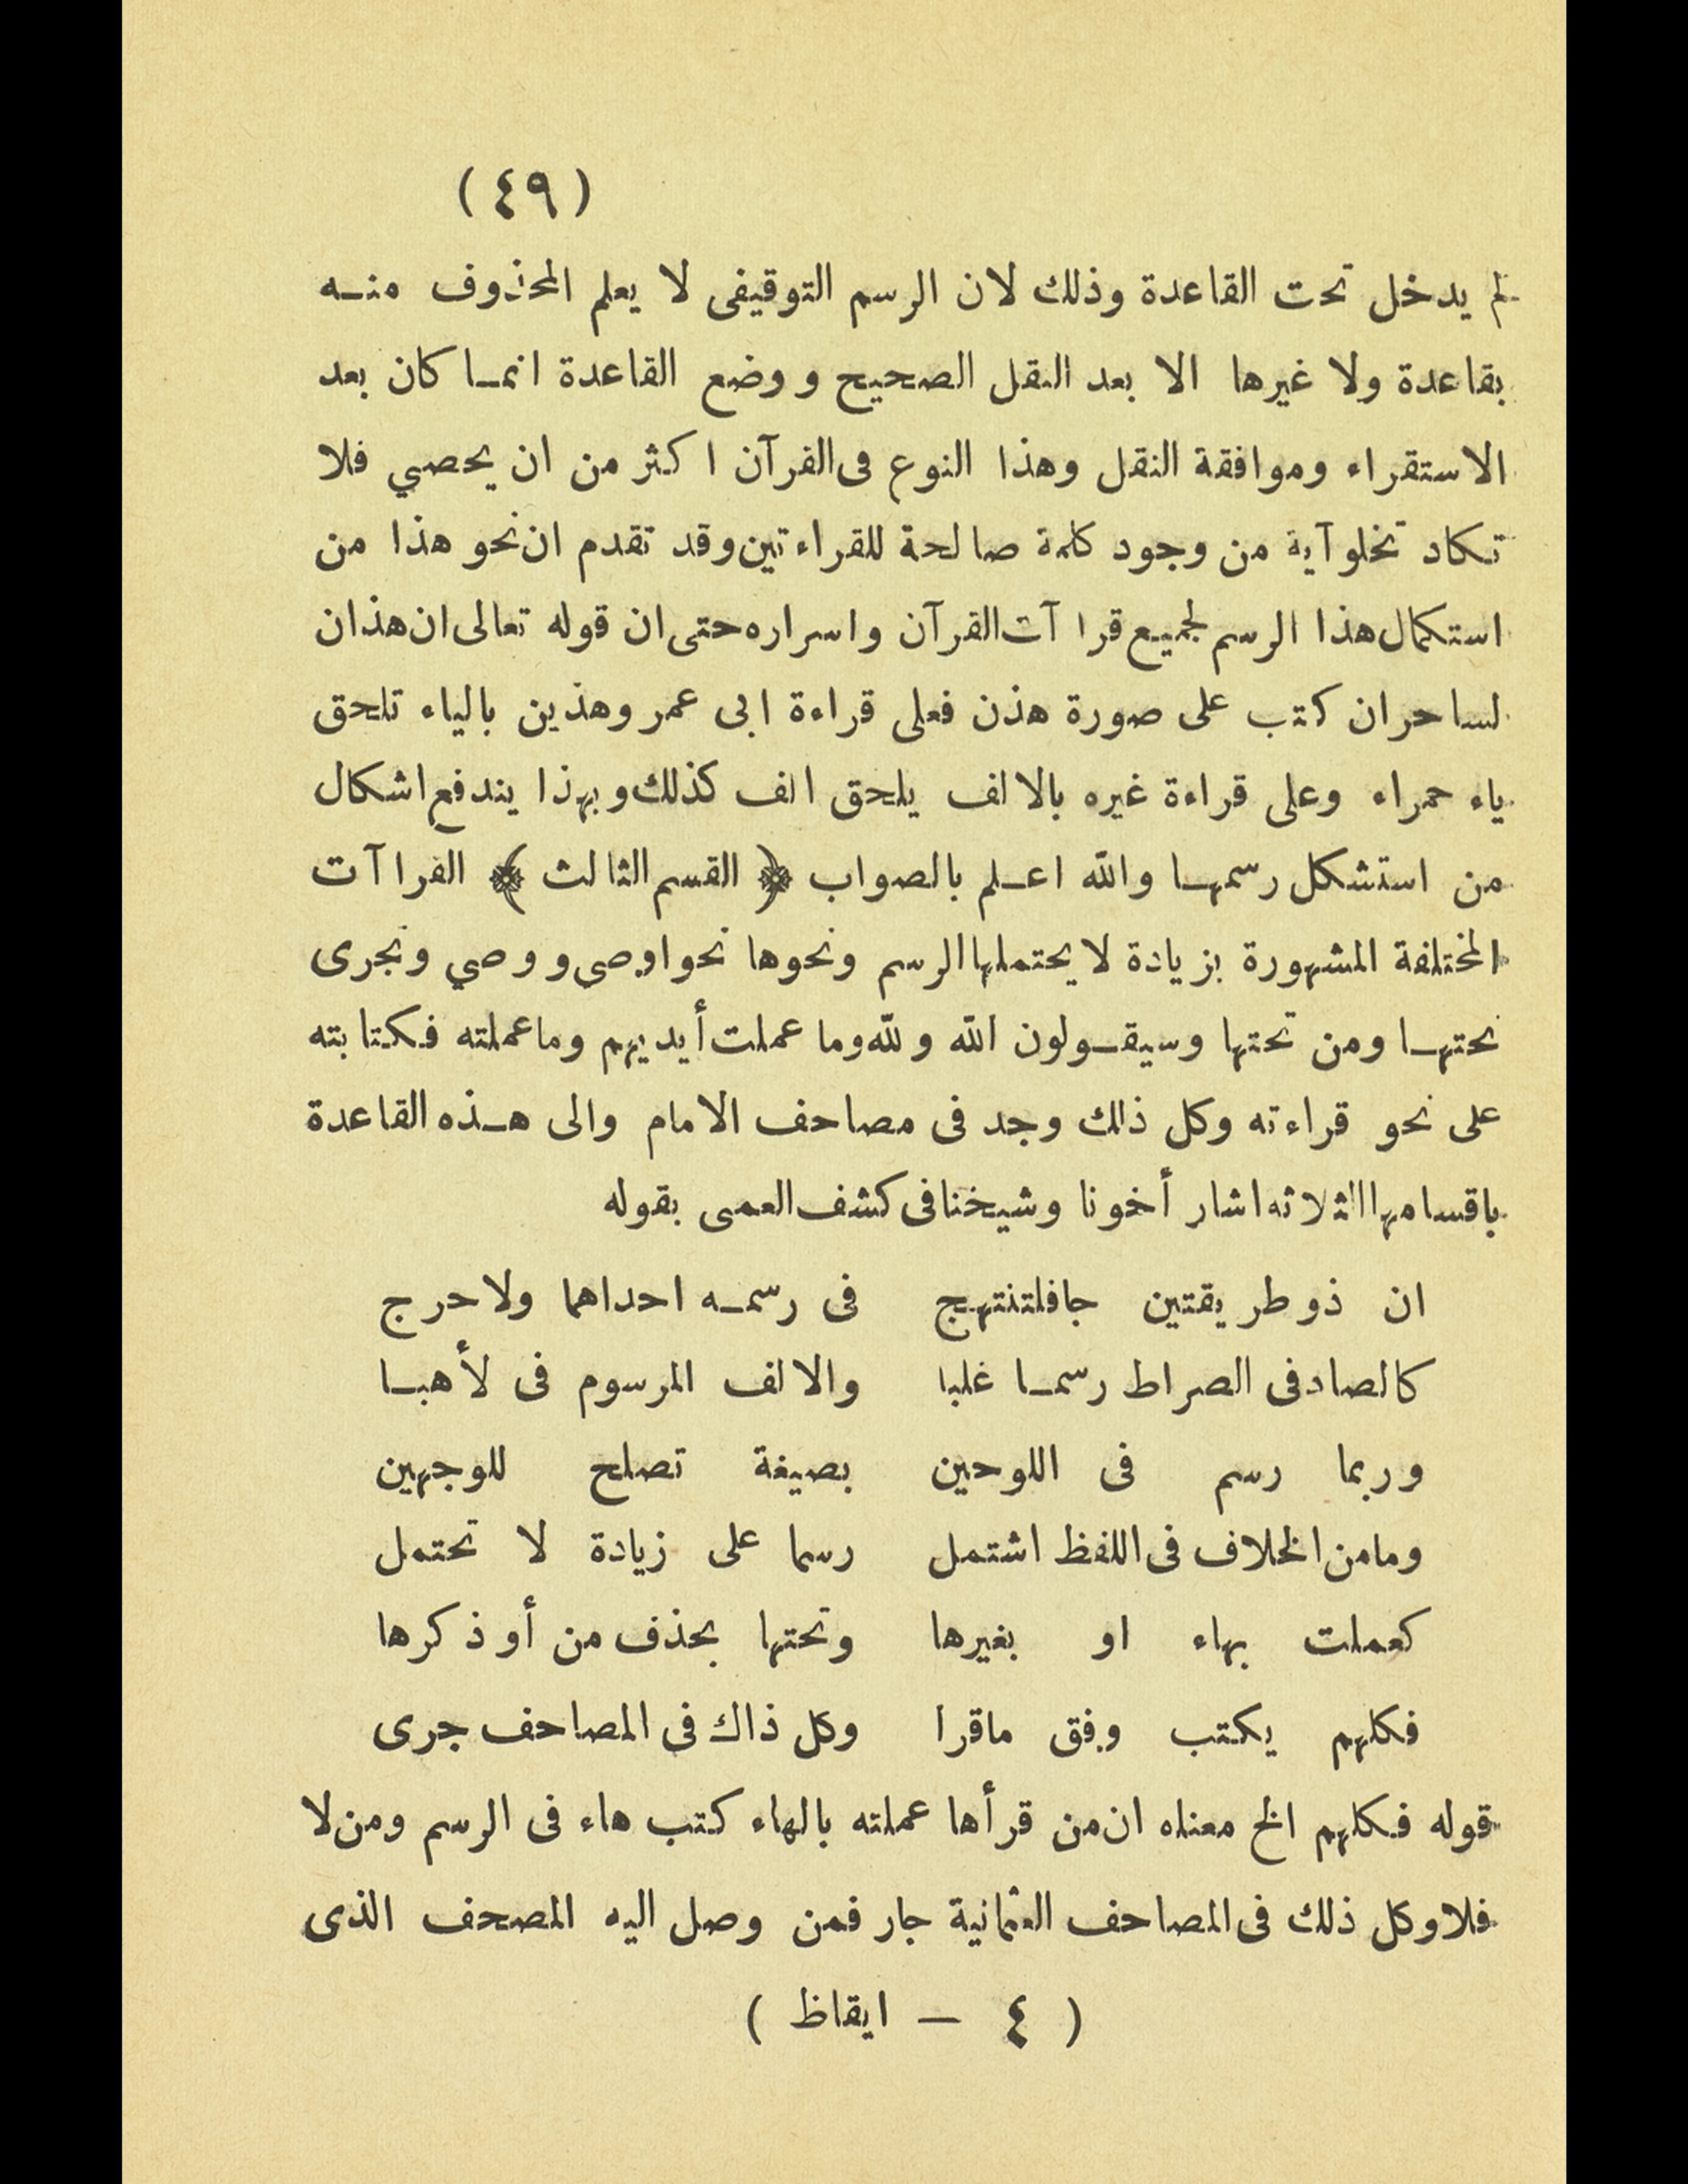 (٤٩)
لم يدخل تحت القاعدة وذلك لان الرسم التوقيفى لا يعلم المحذوف منه
بقاعدة ولا غيرها الا بعد النقل الصحيح ووضع القاعدة انما كان بعد
الاستقراء وموافقة النقل وهذا النوع فى القرآن اكثر من ان يحصي فلا
تكاد تخلو آية من وجود كلمة صالحة للقراءتين وقد تقدم ان نحو هذا من
استكمال هذا الرسم لجميع قرا آت القرآن واسراره حتى ان قوله تعالى ان هذان
لساحران كتب على صورة هذن فعلى قراءة ابى عمر وهذين بالياء تلحق
ياء حمراء وعلى قراءة غيره بالالف يلحق الف كذلك وبهذا يندفع اشكال
من استشكل رسمها والله اعلم بالصواب ﴿ القسم الثالث ﴾ القرا آت
المختلفة المشهورة بزيادة لا يحتملها الرسم ونحوها نحو اوصى ووصي وتجرى
تحتها ومن تحتها وسيقولون الله ولله وما عملت أيديهم وما عملته فكتابته
على نحو قراءته وكل ذلك وجد فى مصاحف الامام والى هذه القاعدة
باقسامها الثلاثه اشار أخونا وشيخنا فى كشف العمى بقوله
ان ذو طريقتين جا فلتنتهج فى رسمه احداهما ولا حرج
كالصاد فى الصراط رسما غلبا والالف المرسوم فى لأهبا
وربما رسم فى اللوحين بصيغة تصلح للوجهين
وما من الخلاف فى اللفظ اشتمل رسما على زيادة لا تحتمل
كعملت بهاء او بغيرها وتحتها بحذف من أو ذكرها
فكلهم يكتب وفق ماقرا وكل ذاك فى المصاحف جرى
قوله فكلهم الخ معناه ان من قرأها عملته بالهاء كتب هاء فى الرسم ومن لا
فلا وكل ذلك فى المصاحف العثمانية جار فمن وصل اليه المصحف الذى
( ٤ — ايقاظ )